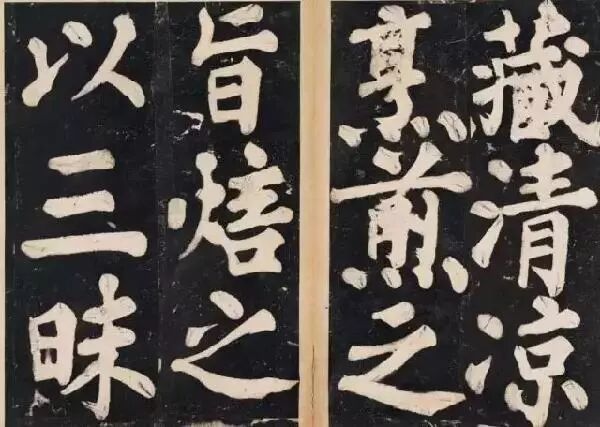 藏清凉
烹煎之
旨焙之
以三昧